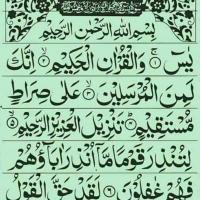 بِسْمِ اللّٰهِ الرَّحْمٰنِ الرَّحِيْمِ
يٰسٓ ۚ﴿۱﴾ وَالْقُرْاٰنِ الْحَكِيْمِ ۙ﴿۲﴾ اِنَّكَ
لَمِنَ الْمُرْسَلِيْنَ ۙ﴿۳﴾ عَلٰى صِرَاطٍ
مُّسْتَقِيْمٍ ؕ﴿۴﴾ تَنْزِيْلَ الْعَزِيْزِ الرَّحِيْمِ ۙ﴿۵﴾
لِتُنْذِرَ قَوْمًا مَّاۤ اُنْذِرَ اٰبَآؤُهُمْ
فَهُمْ غٰفِلُوْنَ ﴿۶﴾ لَقَدْ حَقَّ الْقَوْلُ